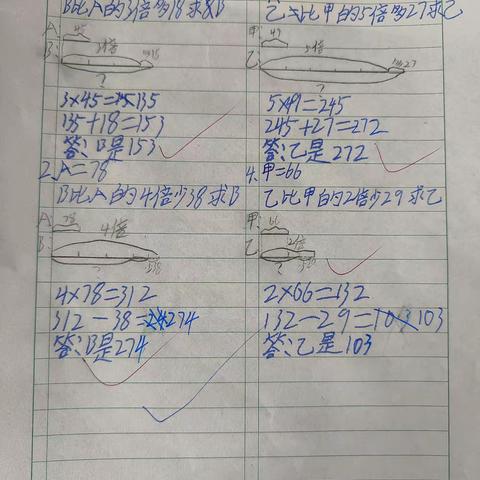 B比A的3倍多18求B
A: 45
B: 3倍 多18
?
3×45=135
135+18=153
答:B是153
2.A=78
B比A的4倍少38求B
A: 78
B: 4倍
少38
?
4×78=312
312-38=274
答:B是274
乙比甲的5倍多27求乙
甲: 49
乙: 5倍
多27
?
5×49=245
245+27=272
答:乙是272
4.甲=66
乙比甲的2倍少29求乙
甲: 66
乙: 2倍
?
2×66=132
132-29=103 103
答:乙是103